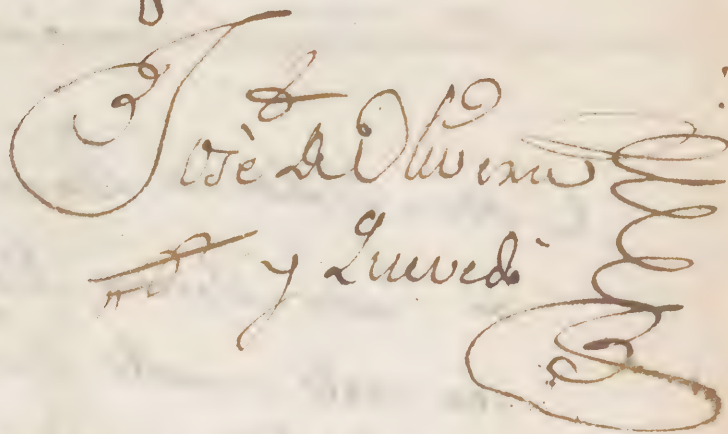 José de Olivera
y Quevedo